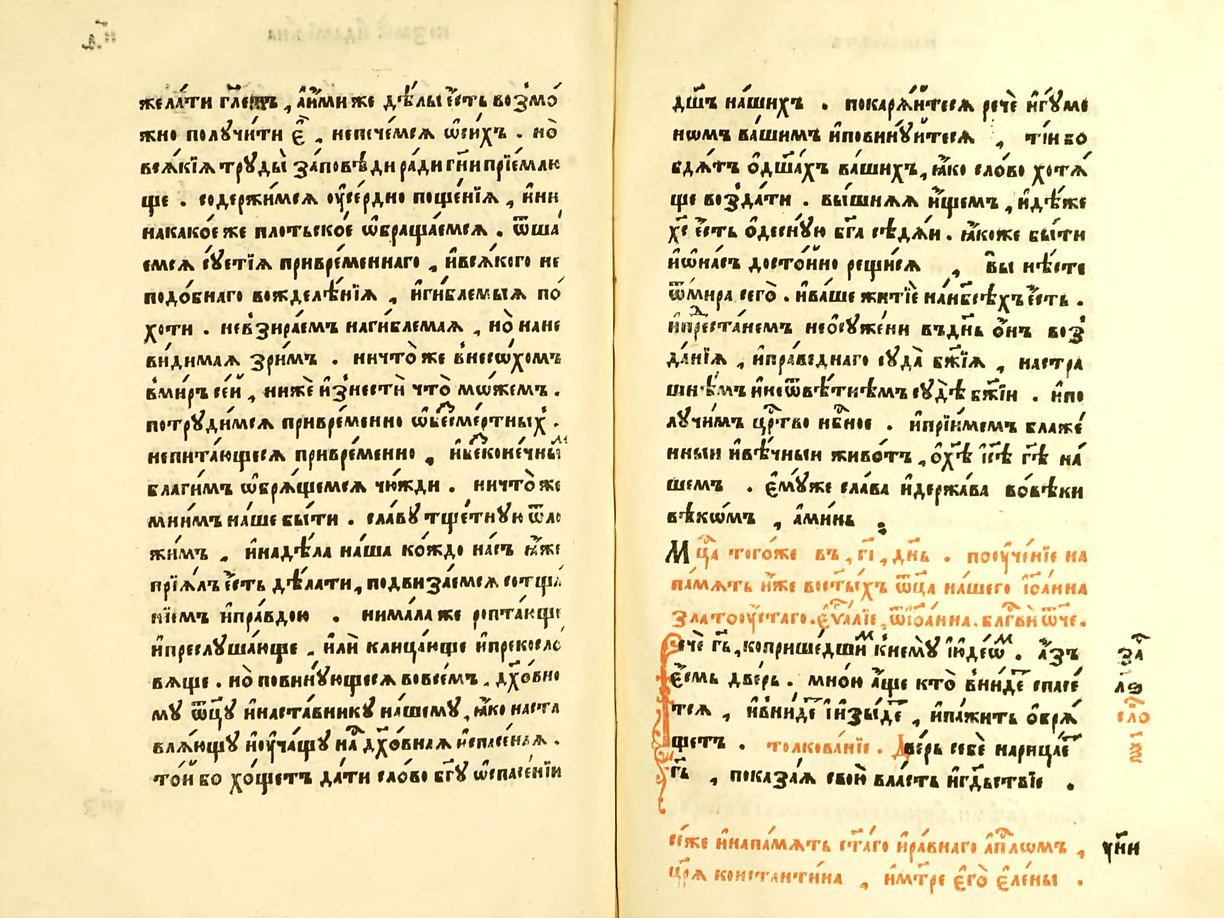 желати гл҃етъ, аимиже дѣлы есть возмо
жно получити є҆, непечемся ѡсихъ. но
всякїя труды заповѣди ради гн҃и прїемлю
ще. содержимся оусердно пощенїя, ини
накакоеже плотьское ѡбращаемся. ѿша
емся суетїя привременнаго, ивсякого не
подобнаго вожделѣнїя, игиблемыя по
хоти. невзираемъ нагиблемая, но нане
видимая зримъ. ничтоже внесохомъ
вмиръ сей, ниже изнести что можемъ.
потрудимся привременно ѡбесмертныхъ.
непитающеся привременно, ибесконечны
благимъ ѡбрящемся чюжди. ничтоже
мнимъ наше быти. славу тщетную ѿло
жимъ, инадѣла наша кождо насъ яже
прїялъ есть дѣлати, подвизаемся сотща
нїемъ иправдою. нималаже роптающе
ипреслушающе, или канцающе ипрекосло
вяще. но повинующеся вовсемъ, дх҃овно
му ѿцу инаставнику нашему, яко наста
вляющу иоучащу на дх҃овная испасеная.
той бо хощетъ дати слово бг҃у ѡспасенїи
дш҃ъ нашихъ. покаряйтеся рече игуме
номъ вашимъ иповинуйтеся, тїи бо
бдятъ ѡдш҃ахъ вашихъ, яко слово хотя
ще воздати. вышняя ищемъ, идѣже
хс҃ есть ѡдесную бг҃а сѣдяи. якоже быти
иѡнасъ достойно рещися, вы нѣсте
ѿмира сего. иваше житїе нанб҃сѣхъ есть.
ипрестанемъ неосужени въднь онъ воз
данїя, иправеднаго суда бж҃їя, настра
шнѣмъ инеѿвѣтнѣмъ судѣ бж҃їи. ипо
лучимъ цр҃тво нб҃ное. ипрїимемъ блаже
нныи ивѣчныи животъ, ѡхѣ іс҃ѣ гд҃ѣ на
шемъ. емуже слава идержава вовѣки
вѣкомъ, аминь
Мц҃а тогоже въ, гі, днь. поучение на
память иже востыхъ ѿца нашего іоанна
златоустаго. еѵ҃алїе, ѿіоанна. благ҃ви ѿче.
Рече гд҃ь, копришедшим кнему іюдеом. азъ
есмь дверь. мною аще кто внидет спасе
тся, ивнидет іизыдет, ипажить обря
щетъ. толкованїе. Дверь себе нарицает
гд҃ь, показая свою власть игд҃ьствїе.
за
ло
сло
сїже инапамять ст҃аго иравнаго апл҃омъ,
царя константина, имт҃ре его елены.